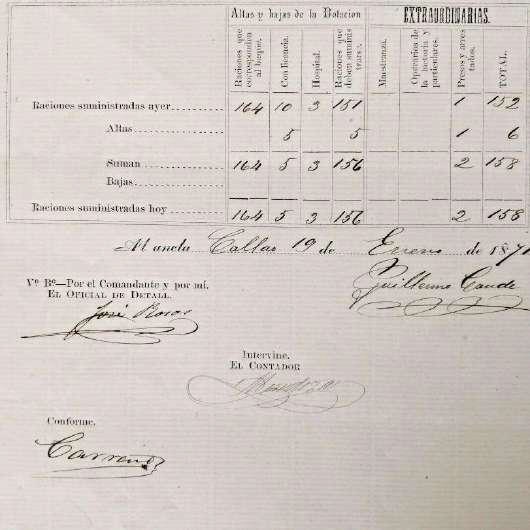 Altas y bajas de la Dotacion EXTRAORDINARIAS.
Raciones que corresponden al buque. Con licencia. Hospital. Raciones que deben suministrarse. Maestranza. de la factoria y particulares. Presos y arrestados. TOTAL.
Raciones suministradas ayer 164 10 3 151 1 152
Altas 5 5 1 6
Suman 164 5 3 156 2 158
Bajas
Raciones suministradas hoy 164 5 3 156 2 158
Al ancla Callao 19 de Enero de 187
Vº Bº—Por el Comandante y por mí. Guillermo
EL OFICIAL DE DETALL.
José Rosas
Intervine.
EL CONTADOR
Conforme.
Carreño